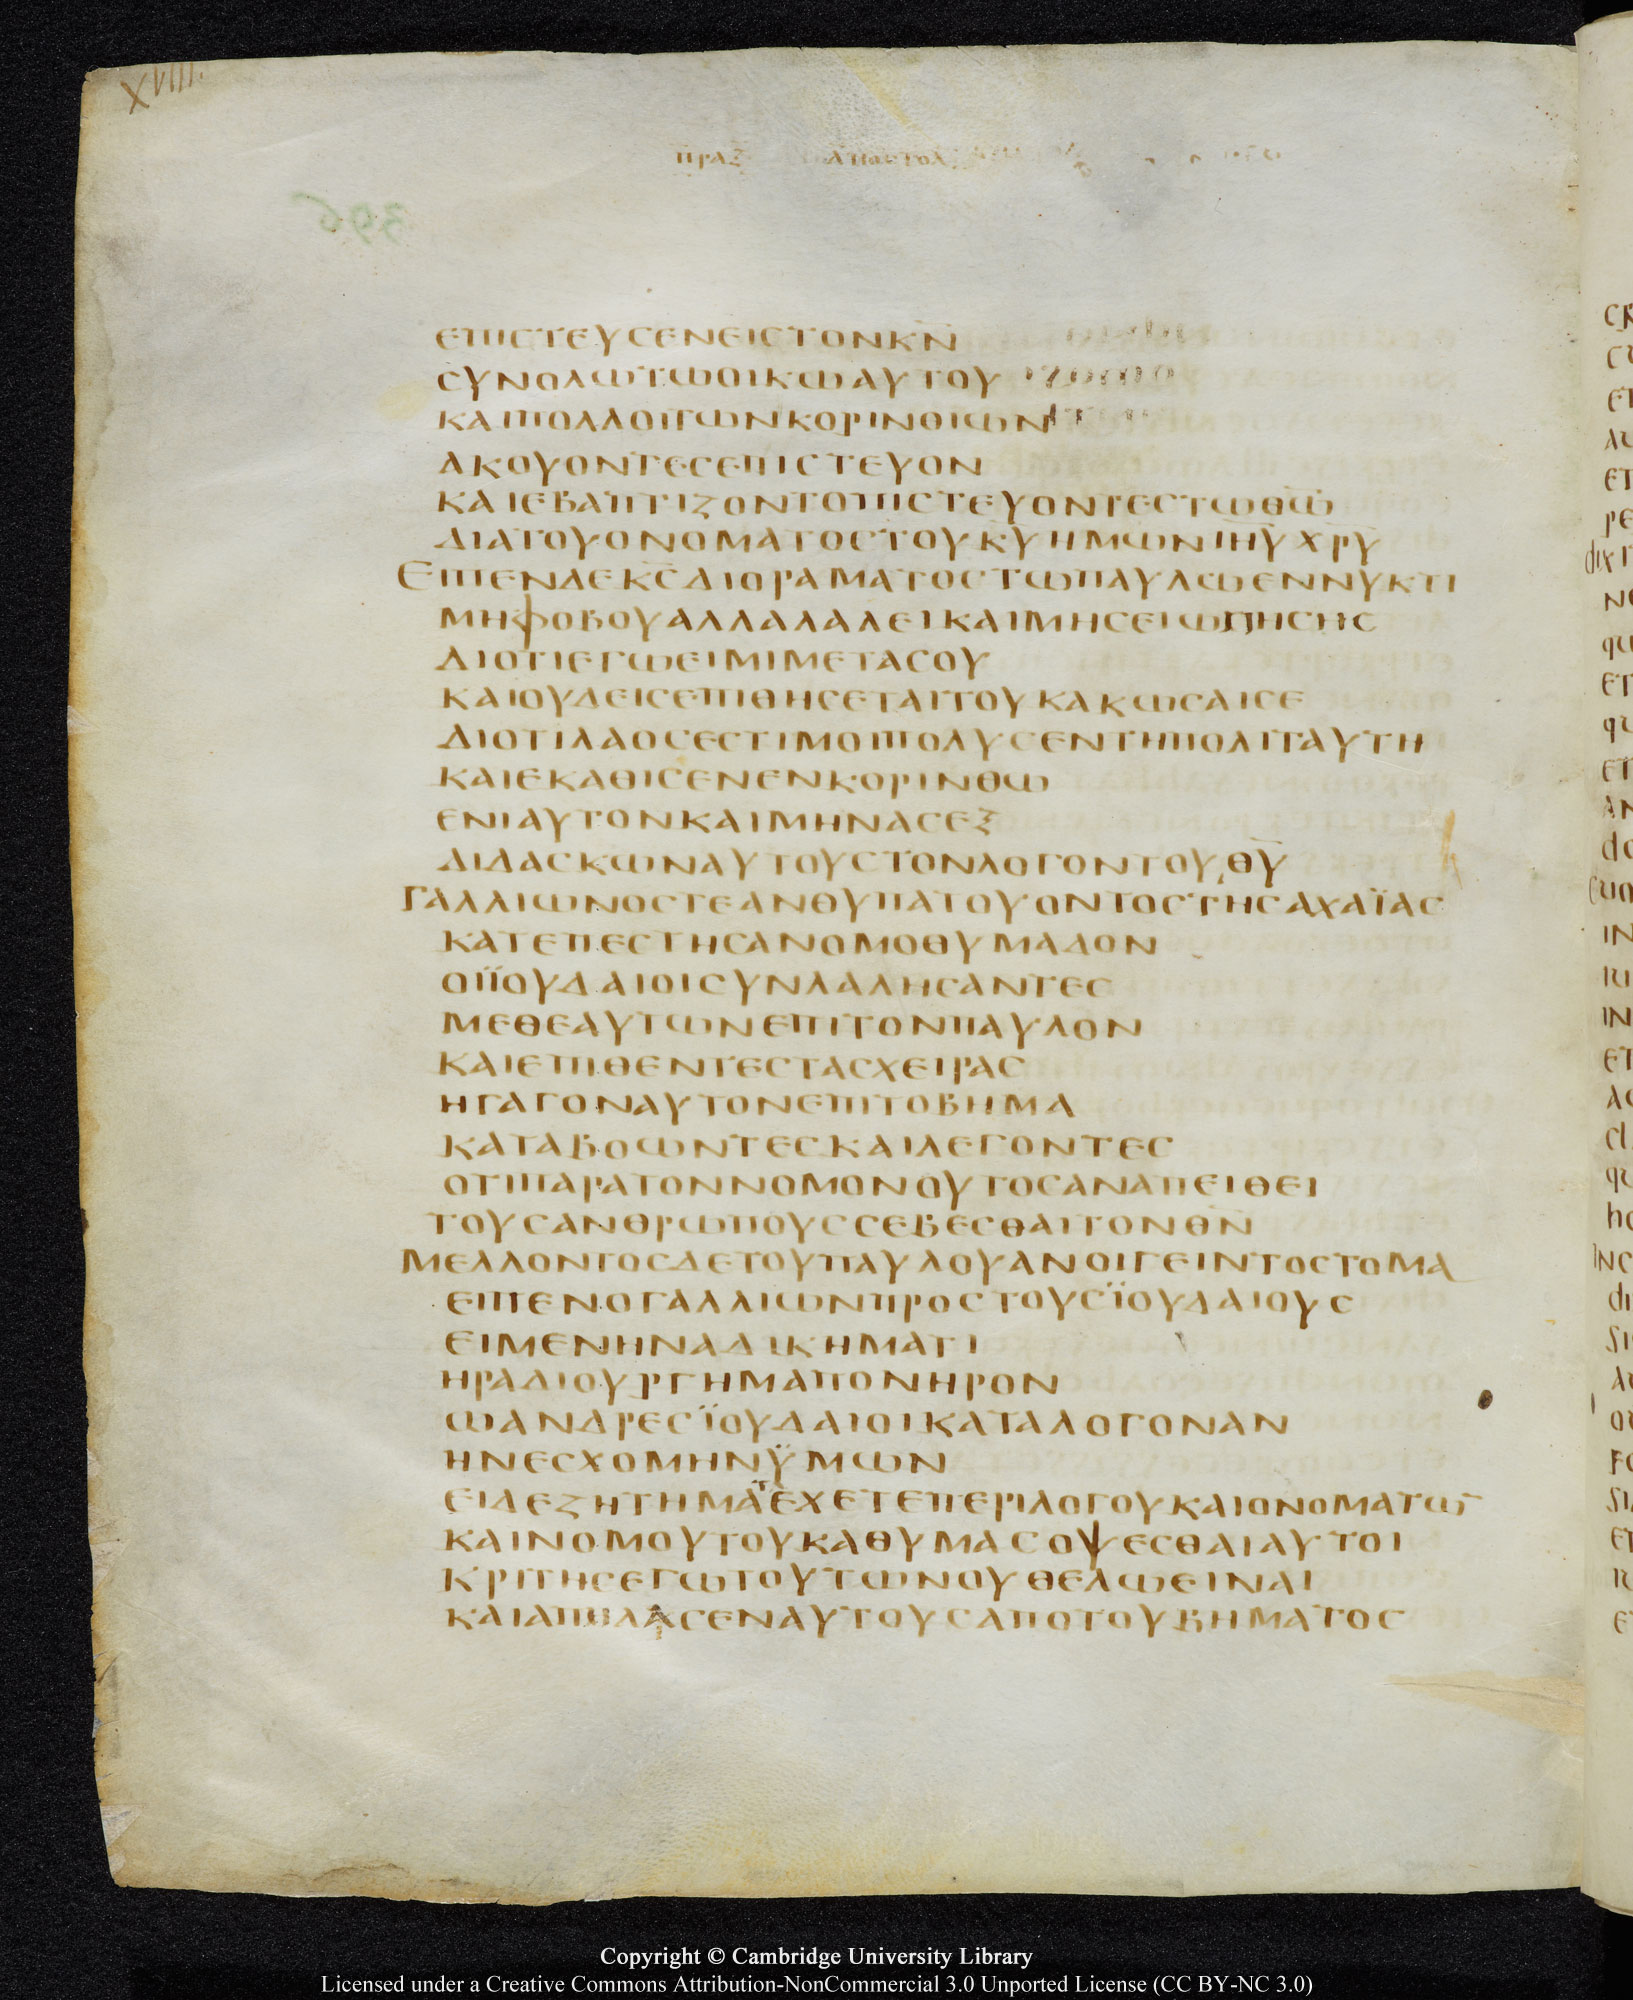 XVIII.
ΠΡΑΞ ΑΠΟΣΤΟΛ
396
ΕΠΙCΤΕΥCΕΝΕΙCΤΟΝΚ̅Ν̅
CΥΝΟΛΩΤΩΟΙΚΩΑΥΤΟΥ
ΚΑΙΠΟΛΛΟΙΤΩΝΚΟΡΙΝΘΙΩΝ
ΑΚΟΥΟΝΤΕCΕΠΙCΤΕΥΟΝ
ΚΑΙΕΒΑΠΤΙΖΟΝΤΟΠΙCΤΕΥΟΝΤΕCΤΩΘ̅Ω̅
ΔΙΑΤΟΥΟΝΟΜΑΤΟCΤΟΥΚ̅Υ̅ΗΜΩΝΙ̅Η̅Υ̅Χ̅Ρ̅Υ̅
ΕΙΠΕΝΔΕΚ̅C̅ΔΙΟΡΑΜΑΤΟCΤΩΠΑΥΛΩΕΝΝΥΚΤΙ
ΜΗΦΟΒΟΥΑΛΛΑΛΑΛΕΙΚΑΙΜΗCΕΙΩΠΗCΗC
ΔΙΟΤΙΕΓΩΕΙΜΙΜΕΤΑCΟΥ
ΚΑΙΟΥΔΕΙCΕΠΙΘΗCΕΤΑΙΤΟΥΚΑΚΩCΑΙCΕ
ΔΙΟΤΙΛΑΟCΕCΤΙΜΟΙΠΟΛΥCΕΝΤΗΠΟΛΙΤΑΥΤΗ
ΚΑΙΕΚΑΘΙCΕΝΕΝΚΟΡΙΝΘΩ
ΕΝΙΑΥΤΟΝΚΑΙΜΗΝΑCΕΞ
ΔΙΔΑCΚΩΝΑΥΤΟΥCΤΟΝΛΟΓΟΝΤΟΥΘ̅Υ̅
ΓΑΛΛΙΩΝΟCΤΕΑΝΘΥΠΑΤΟΥΟΝΤΟCΤΗCΑΧΑΪΑC
ΚΑΤΕΠΕCΤΗCΑΝΟΜΟΘΥΜΑΔΟΝ
ΟΙΪΟΥΔΑΙΟΙCΥΝΛΑΛΗCΑΝΤΕC
ΜΕΘΕΑΥΤΩΝΕΠΙΤΟΝΠΑΥΛΟΝ
ΚΑΙΕΠΙΘΕΝΤΕCΤΑCΧΕΙΡΑC
ΗΓΑΓΟΝΑΥΤΟΝΕΠΙΤΟΒΗΜΑ
ΚΑΤΑΒΟΩΝΤΕCΚΑΙΛΕΓΟΝΤΕC
ΟΤΙΠΑΡΑΤΟΝΝΟΜΟΝΟΥΤΟCΑΝΑΠΕΙΘΕΙ
ΤΟΥCΑΝΘΡΩΠΟΥCCΕΒΕCΘΑΙΤΟΝΘ̅Ν̅
ΜΕΛΛΟΝΤΟCΔΕΤΟΥΠΑΥΛΟΥΑΝΟΙΓΕΙΝΤΟCΤΟΜΑ
ΕΙΠΕΝΟΓΑΛΛΙΩΝΠΡΟCΤΟΥCΪΟΥΔΑΙΟΥC
ΕΙΜΕΝΗΝΑΔΙΚΗΜΑΤΙ
ΗΡΑΔΙΟΥΡΓΗΜΑΠΟΝΗΡΟΝ
ΩΑΝΔΡΕCΪΟΥΔΑΙΟΙΚΑΤΑΛΟΓΟΝΑΝ
ΗΝΕCΧΟΜΗΝΫΜΩΝ
ΕΙΔΕΖΗΤΗΜΑΕΧΕΤΕΠΕΡΙΛΟΓΟΥΚΑΙΟΝΟΜΑΤΩ̅
ΚΑΙΝΟΜΟΥΤΟΥΚΑΘΥΜΑCΟΨΕCΘΑΙΑΥΤΟΙ
ΚΡΙΤΗCΕΓΩΤΟΥΤΩΝΟΥΘΕΛΩΕΙΝΑΙ
ΚΑΙΑΠΗΛΑCΕΝΑΥΤΟΥCΑΠΟΤΟΥΒΗΜΑΤΟC
Copyright © Cambridge University Library
Licensed under a Creative Commons Attribution-NonCommercial 3.0 Unported License (CC BY-NC 3.0)